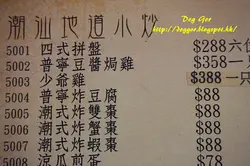 潮汕地道小炒
Dog Gor
http://doggor.blogspot.hk/
5001 四式拼盤 $288六位
5002 普寧豆醬焗雞 $358一隻
5003 少爺雞 $388一只
5004 普寧炸豆腐 $88
5005 潮式炸雙棗 $88
5006 潮式炸蟹棗 $88
5007 潮式炸蝦棗 $88
5008 涼瓜煎蛋 $78